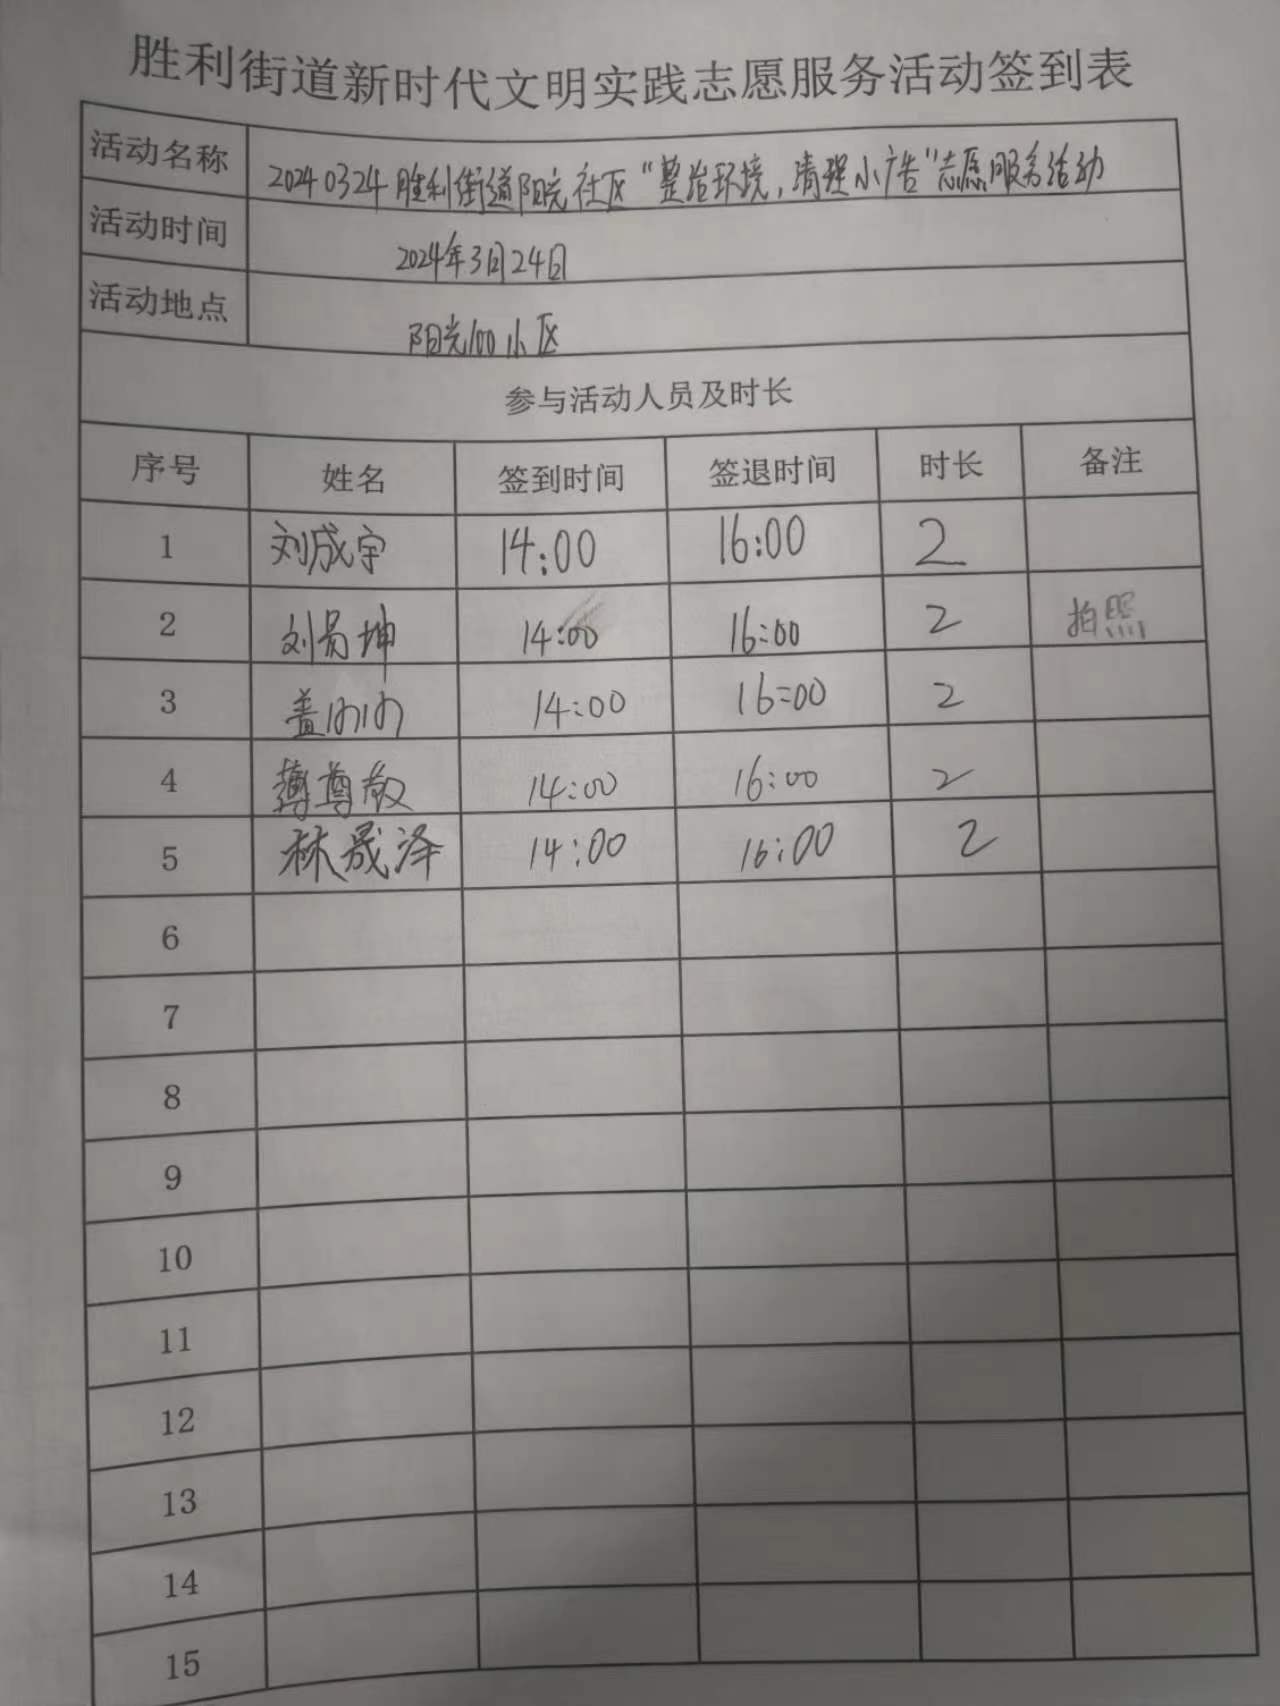 胜利街道新时代文明实践志愿服务活动签到表
活动名称 20240324胜利街道阳光社区“整治环境,清理小广告”志愿服务活动
活动时间 2024年3月24日
活动地点 阳光100小区
参与活动人员及时长
序号 姓名 签到时间 签退时间 时长 备注
1 刘成宇 14:00 16:00 2
2 刘易坤 14:00 16:00 2 拍照
3 盖 14:00 16:00 2
4 尊 14:00 16:00 2
5 林晟泽 14:00 16:00 2
6
7
8
9
10
11
12
13
14
15